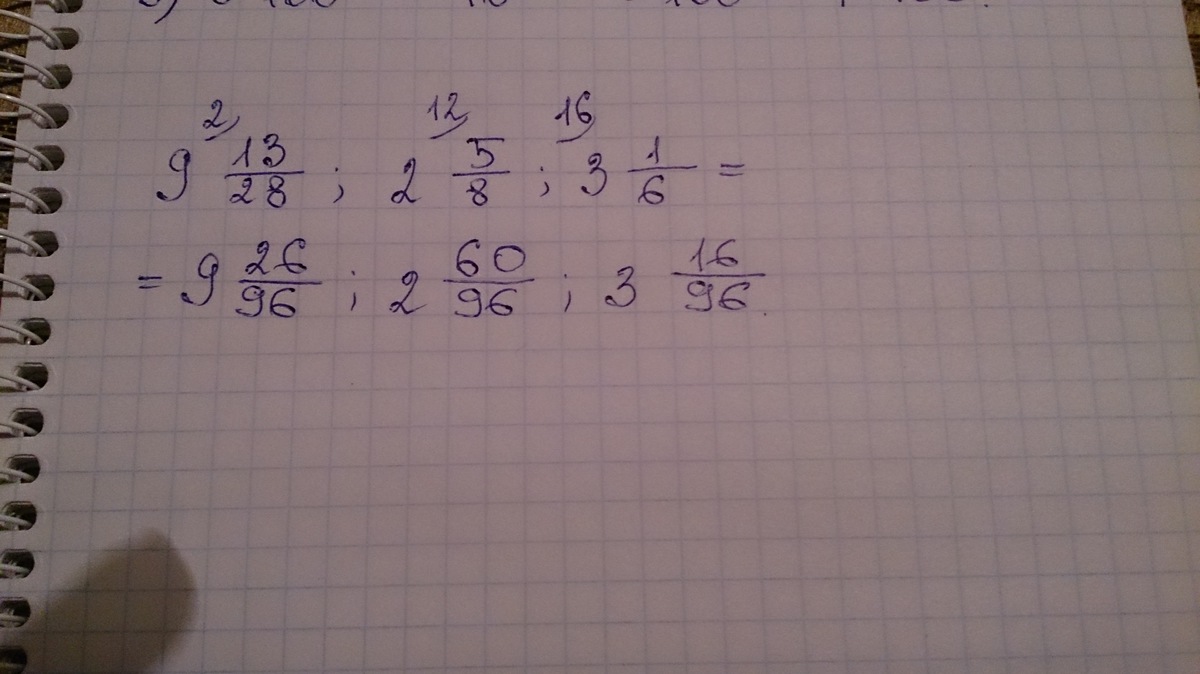 2 12 16
9 13/28 ; 2 5/8 ; 3 1/6 =
= 9 26/96 ; 2 60/96 ; 3 16/96.